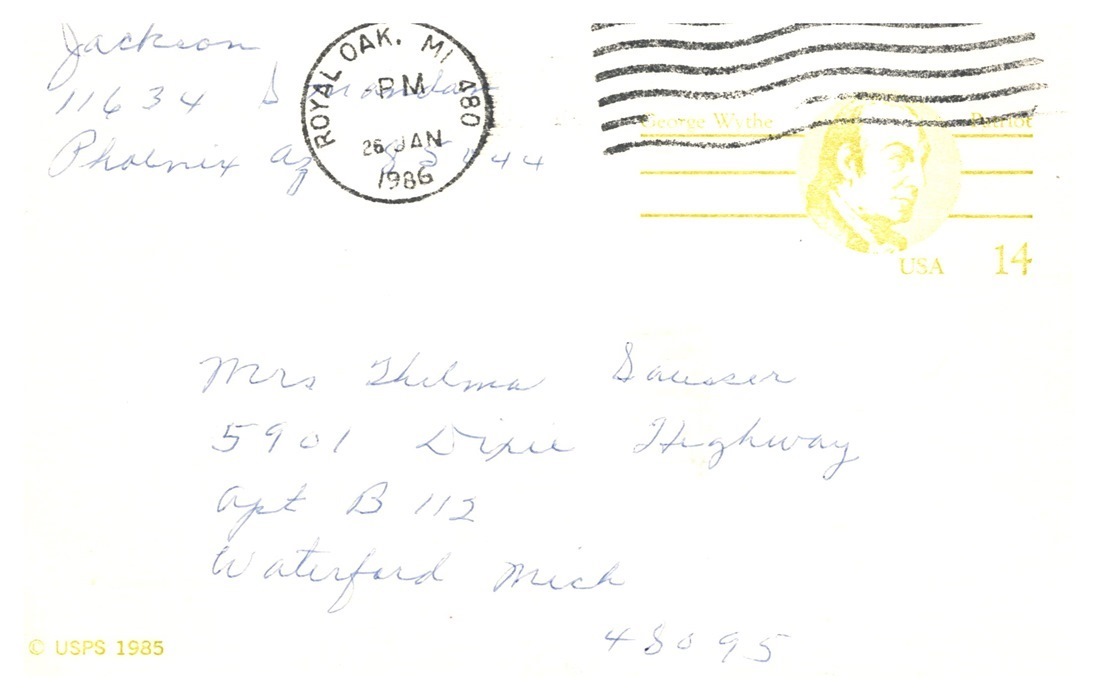 Jackson
11634 S
Phoenix Az 85044
ROYAL OAK, MI 480
PM
26 JAN
1986
George Wythe Patriot
USA 14
Mrs Thelma Sausser
5901 Dixie Highway
Apt B 112
Waterford Mich
48095
© USPS 1985